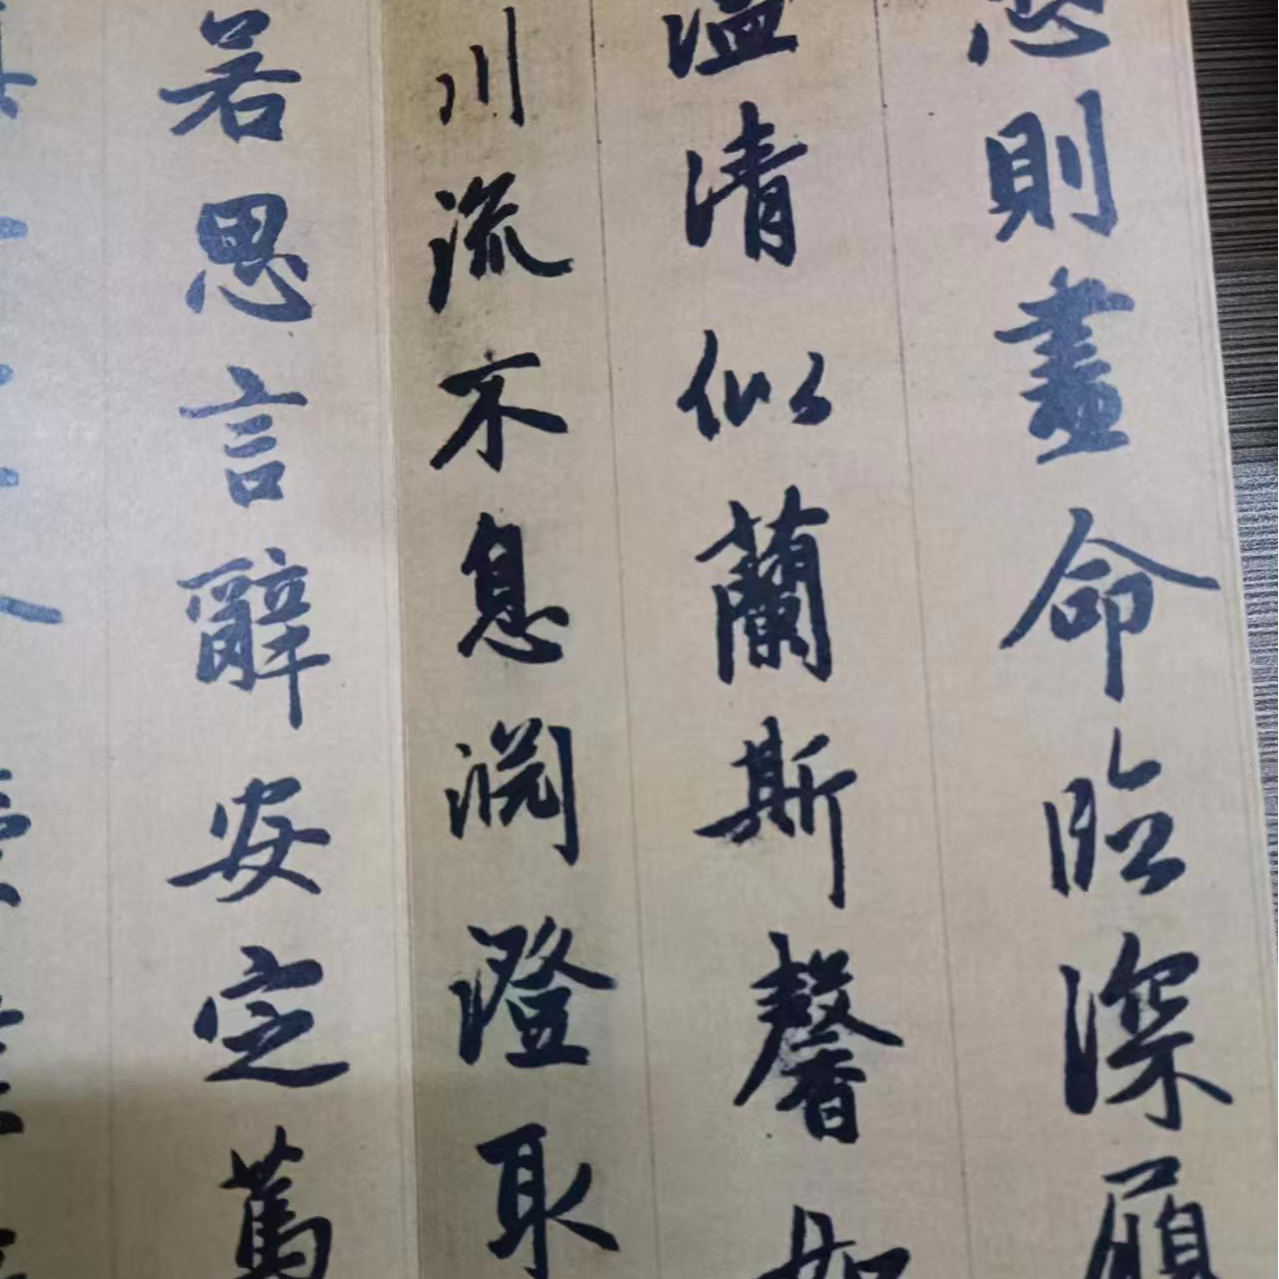 忠則盡命臨深履
溫清似蘭斯馨如
川流不息淵澄取
若思言辭安定篤